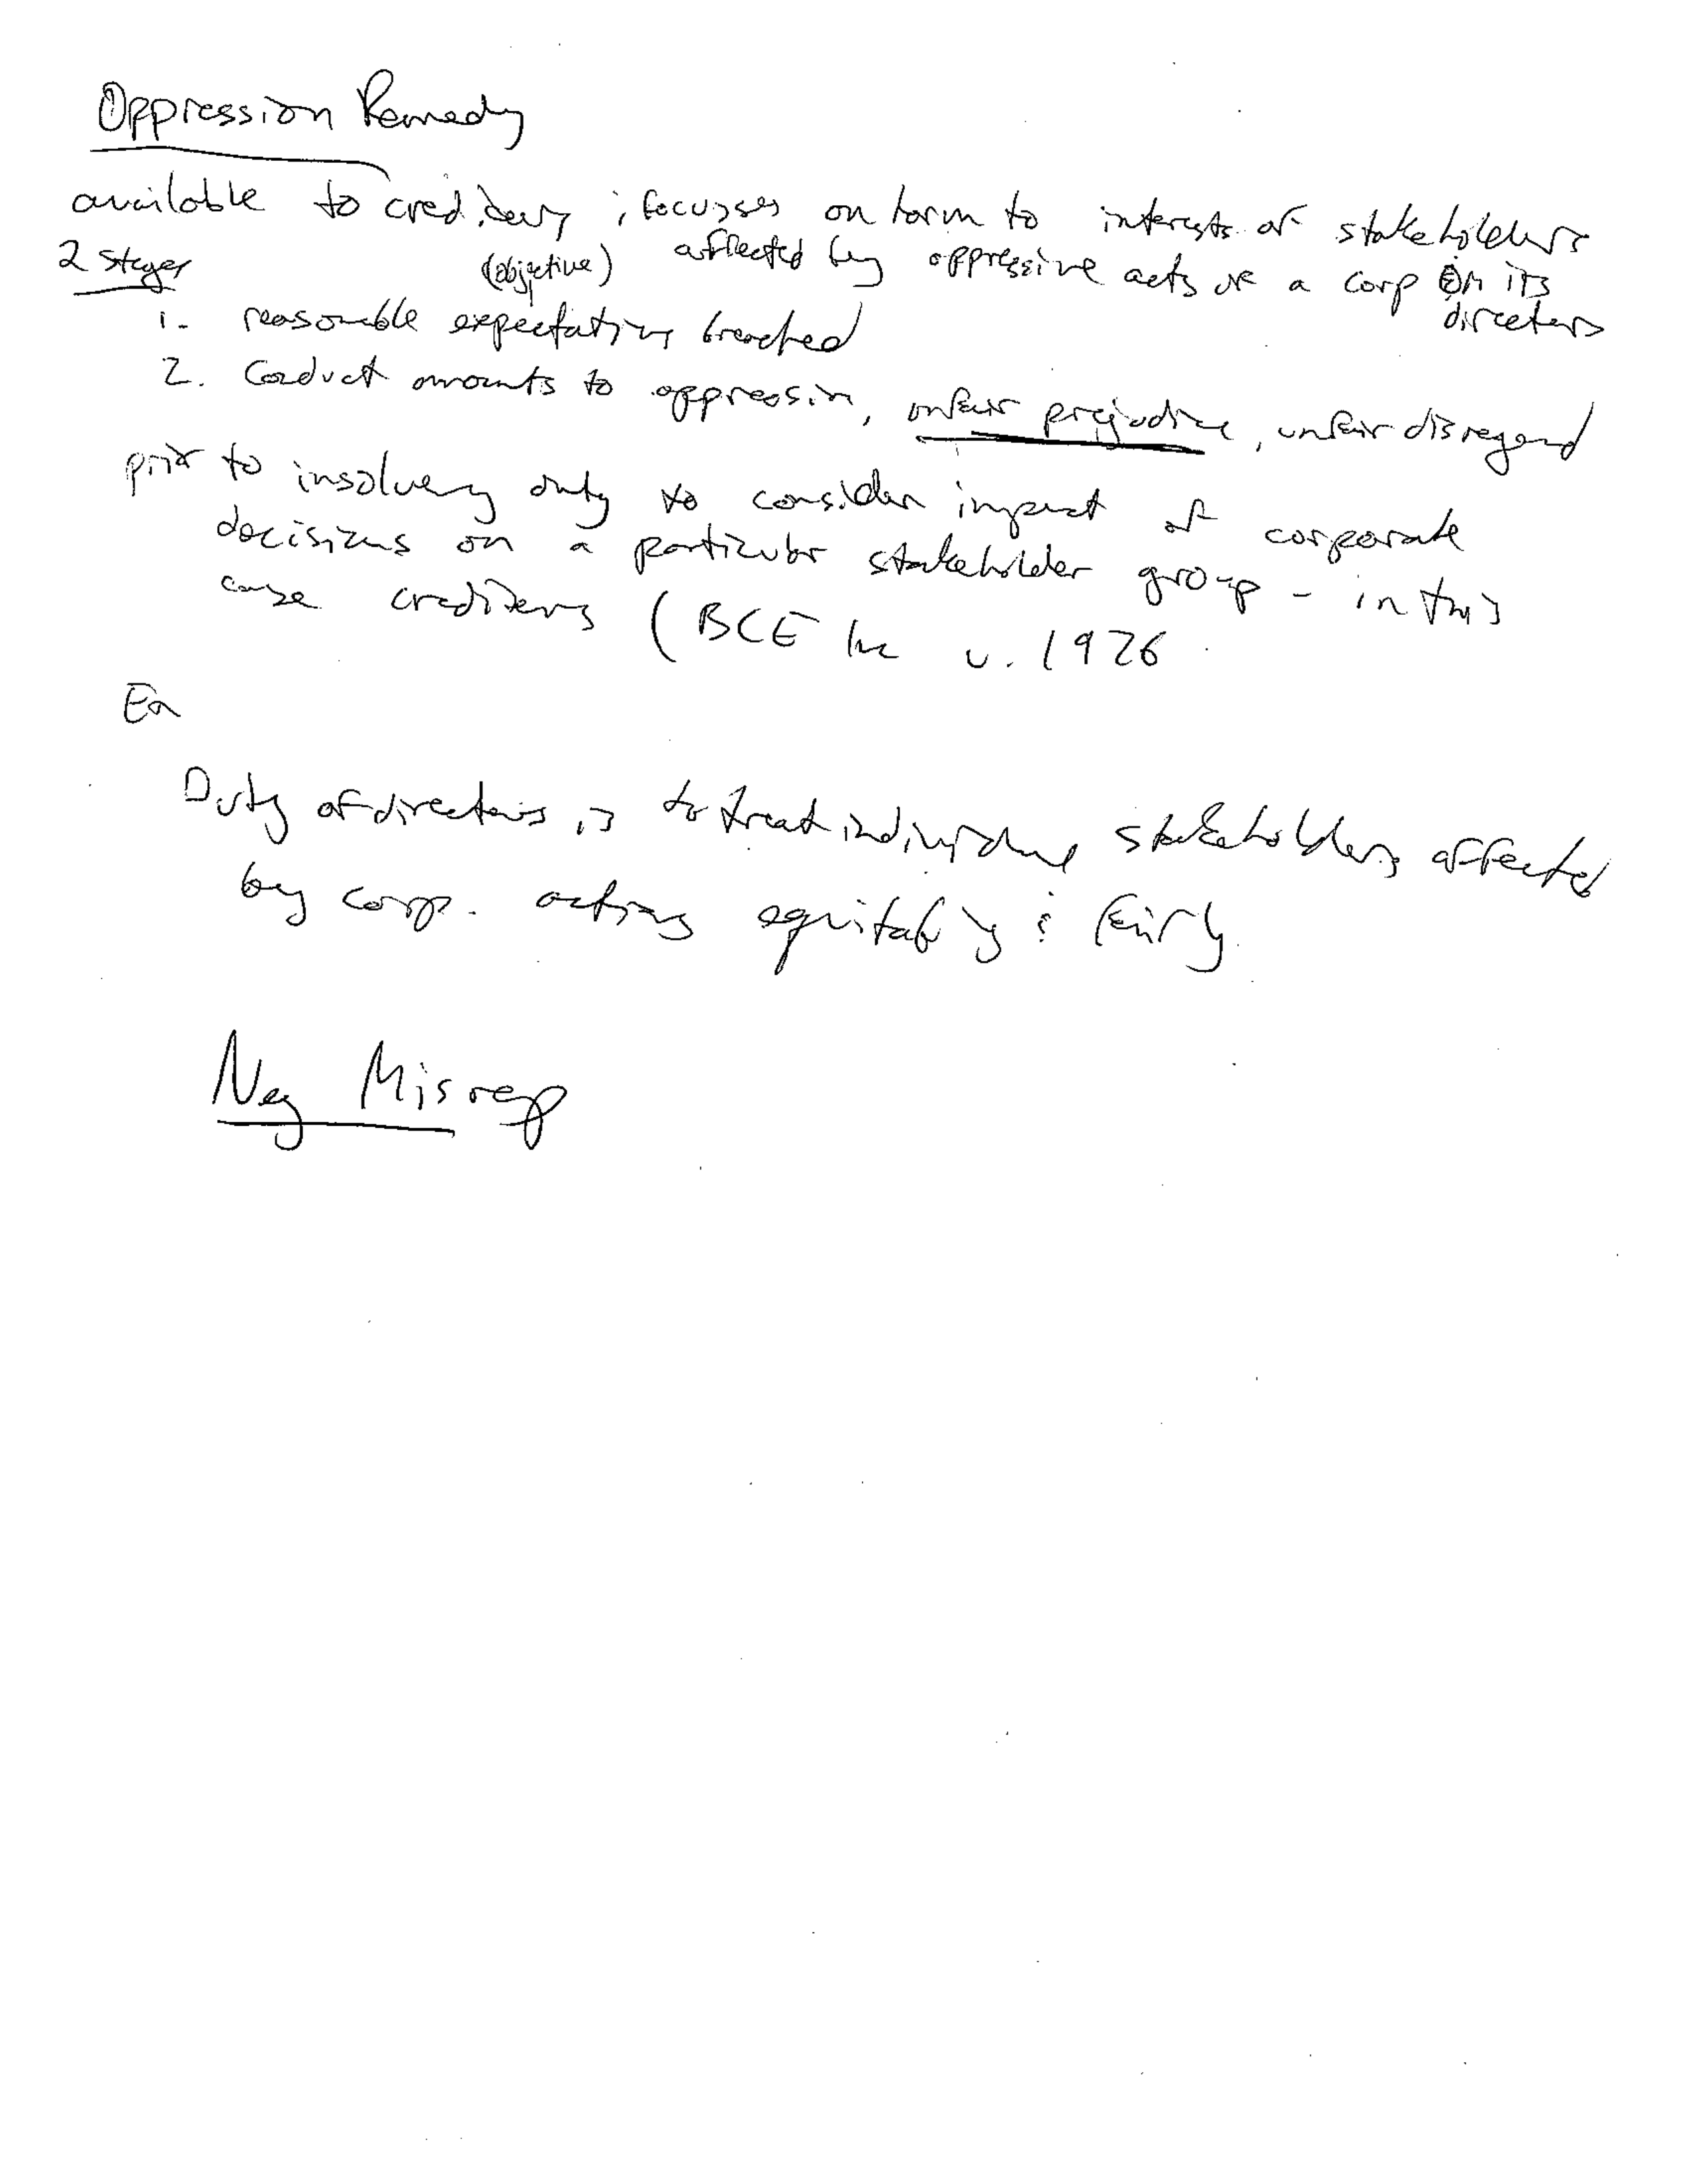 Oppression Remedy
available to creditors ; focusses on harm to interests of stakeholders
affected by oppressive acts of a corp or its
directors
2 stages
(objective)
1. reasonable expectations breached
2. Conduct amounts to oppression, unfair prejudice, unfair disregard
prior to insolvency duty to consider impact of corporate
decisions on a particular stakeholder group - in this
case creditors (BCE Inc v. 1976
Duty of directors is to treat individual stakeholders affected
by corp. actions equitably & fairly.
Neg Misrep